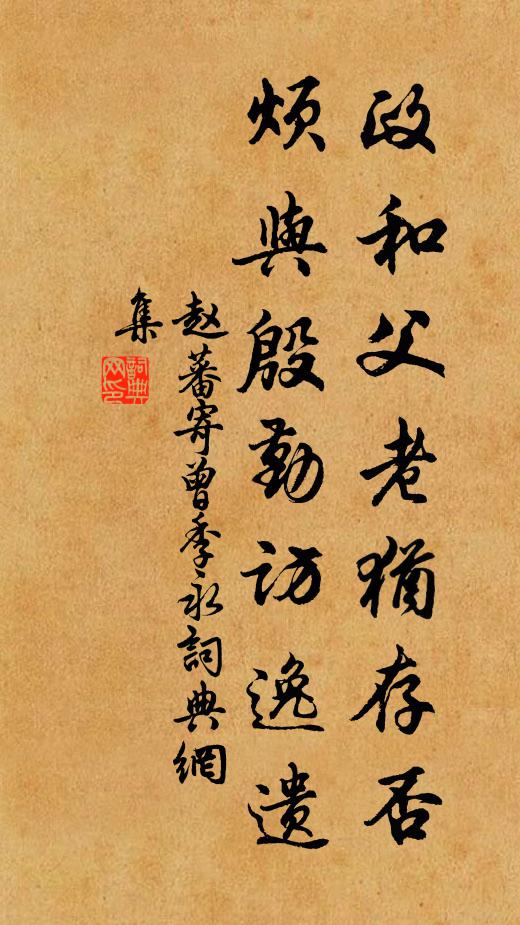 政和父老犹存否
烦与殷勤访逸遗
赵蕃寄曾季永詞典網
集
詞典
网印